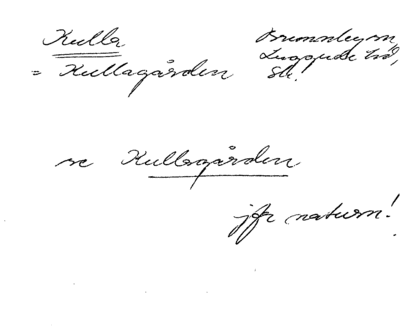 Kulla
= Kullagården
Brunnby sn,
Luggude hd,
Sk!
se Kullagården
jfr naturn!